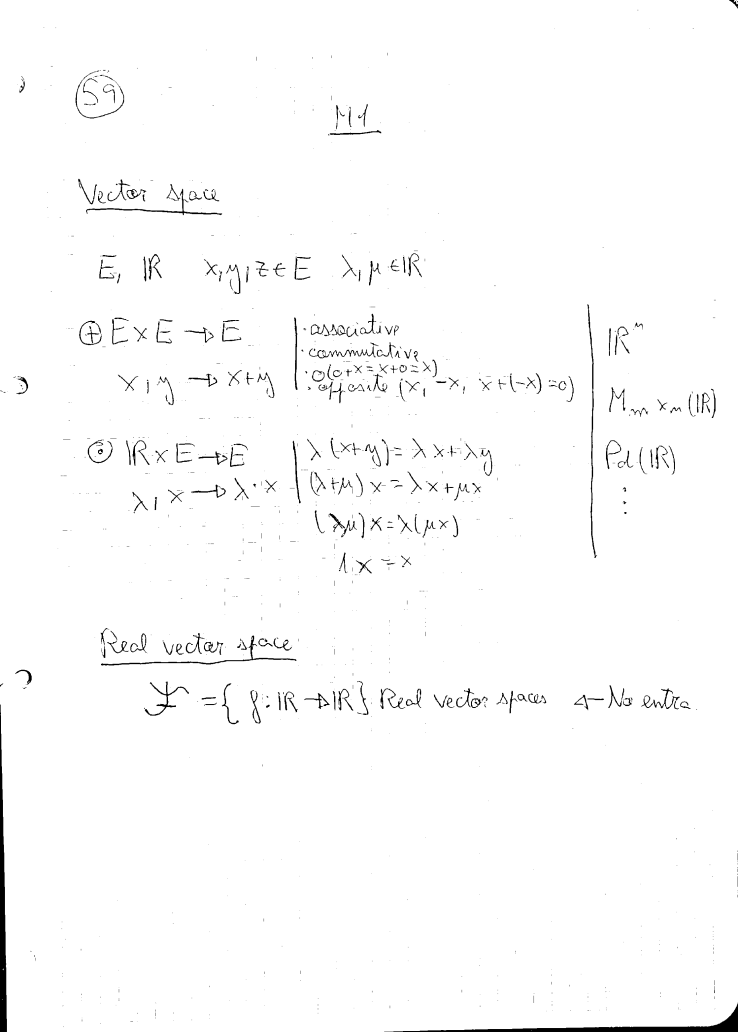 59
M1
Vector space
E, ℝ x, y, z ∈ E λ, μ ∈ ℝ
⊕ E×E → E
x, y → x+y
· associative
· commutative
· 0 (0+x = x+0 = x)
· opposite (x, -x, x+(-x) = 0)
⊙ ℝ×E → E
λ, x → λ·x
λ(x+y) = λx+λy
(λ+μ)x = λx+μx
(λμ)x = λ(μx)
1x = x
ℝⁿ
Mm×n(ℝ)
Pd(ℝ)
⋮
Real vector space
= { f: ℝ → ℝ } Real vector spaces ← No entra